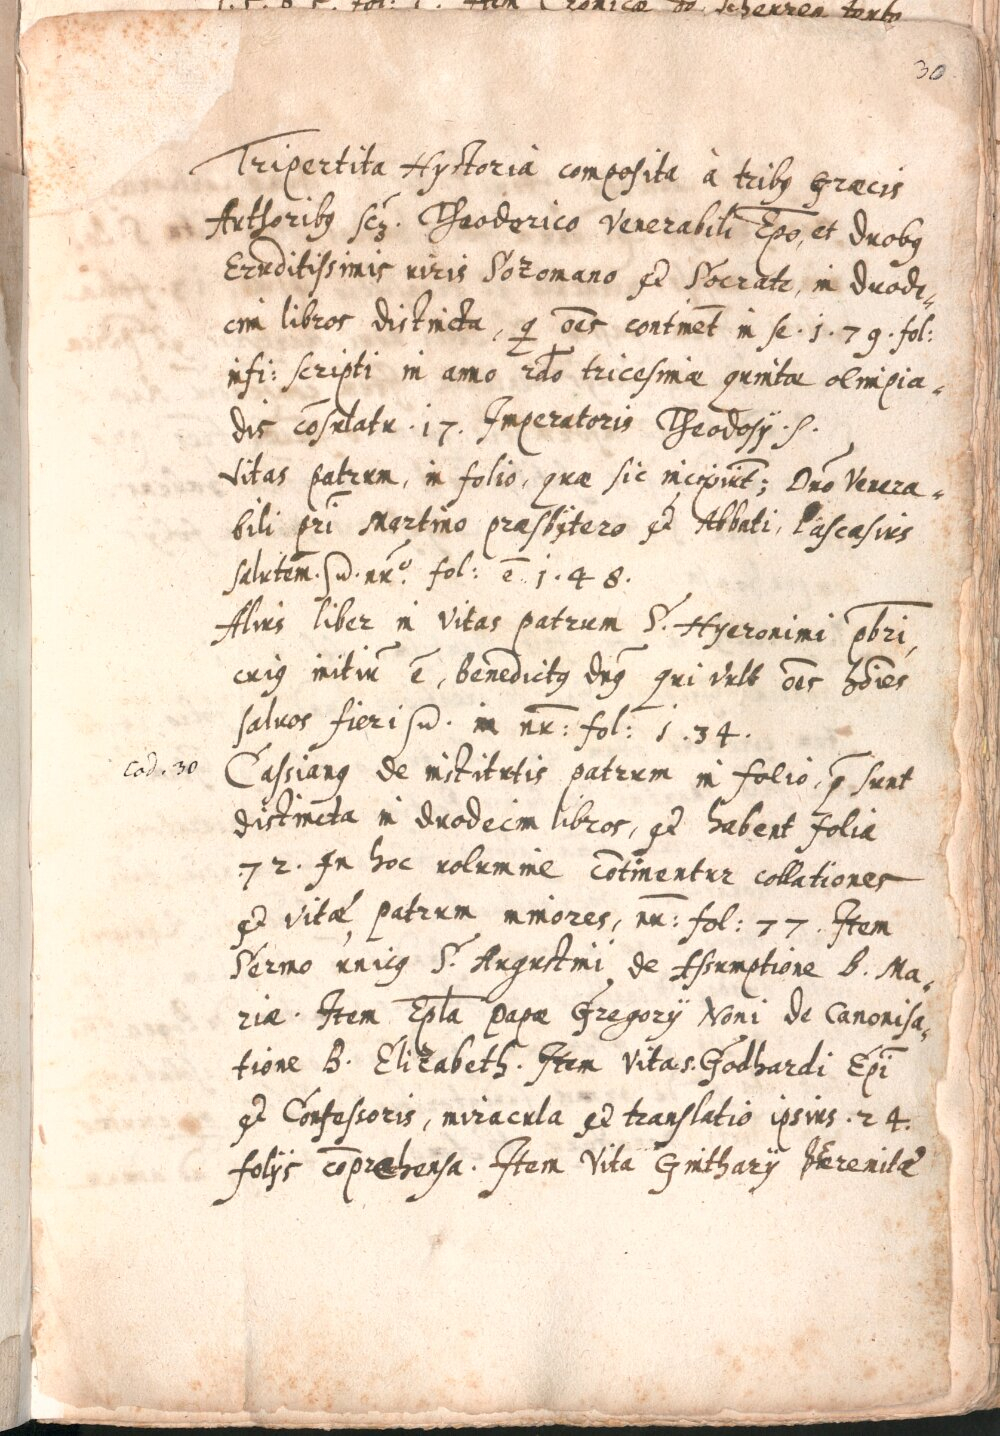 30
Tripertita Hystoria composita à tribꝰ Græcis
Authoribꝰ scꝫ. Theoderico Venerabili Epo, et duobꝰ
Eruditissimis viris Sozomano et Socrate, in duode-
cim libros distincta, q̄ oēs continēt in se .1.79. fol:
infi: scripti in anno tricesimæ quintæ olimpia-
dis cōsulatu .17. Imperatoris Theodosÿ .S.
Vitas patrum, in folio, quæ sic incipiūt; Dn̄o Venera-
bili pr̄i Martino præsbÿtero et Abbati, Pascasius
salutem. fol: ē 1.48.
Alius liber in Vitas patrum S. Hyeronimi pbr̄i,
cuiꝰ initiū ē, benedictꝰ dn̄ꝰ qui vult oēs hōīes
saluos fieri in nr̄: fol: 1.34.
Cod. 30 Cassianꝰ de institutis patrum in folio, q̄ sunt
distincta in duodecim libros, et habent folia
72. In hoc volumine cōtinentur collationes
et vitæ patrum minores, nr̄: fol: 77. Item
Sermo unicꝰ S. Augustini de Assumptione B. Ma-
riæ. Item Epla Papæ Gregorÿ Noni de Canonisa-
tione B. Elizabeth. Item Vita s. Godhardi Epī
et Confessoris, miracula et translatio ipsius .24.
folÿs cōpræhensa. Item Vita Gintharÿ Heremitæ